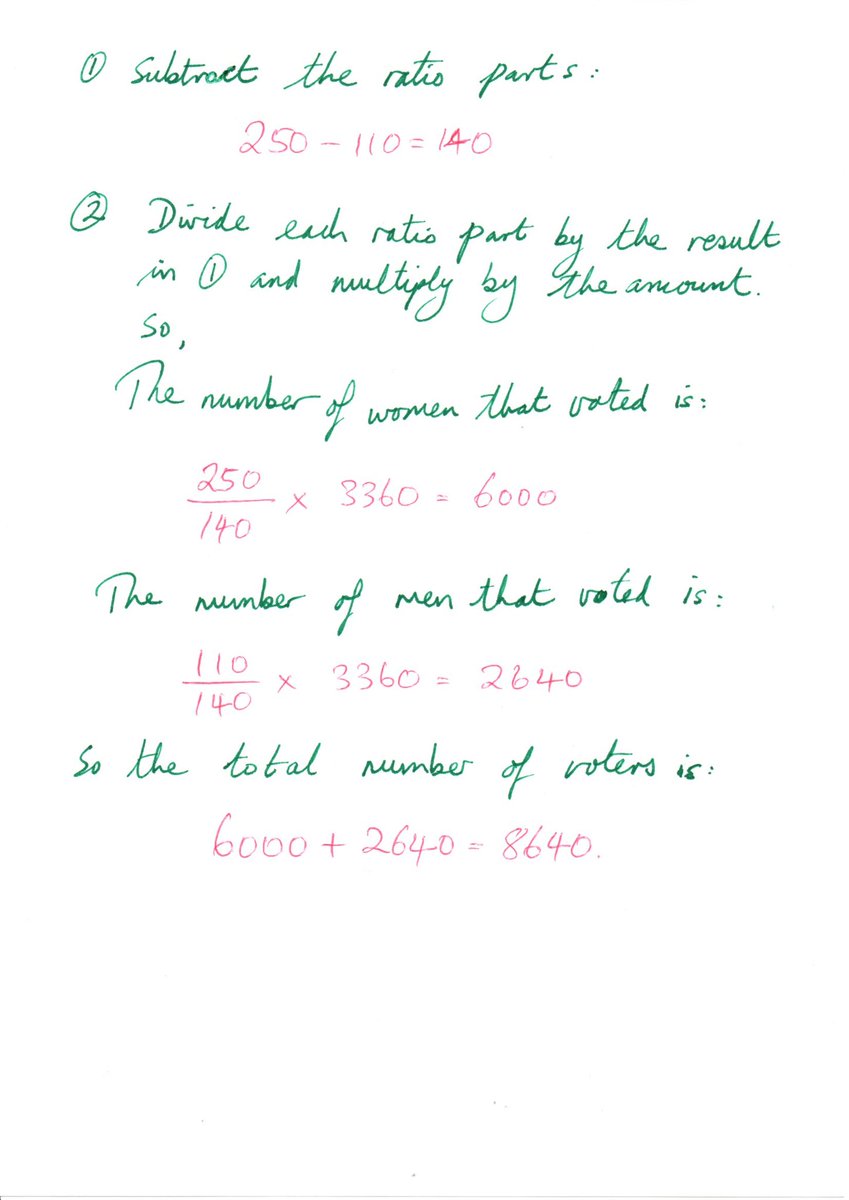 ① Subtract the ratio parts:
250 - 110 = 140
② Divide each ratio part by the result
in ① and multiply by the amount.
So,
The number of women that voted is:
250/140 × 3360 = 6000
The number of men that voted is:
110/140 × 3360 = 2640
So the total number of voters is:
6000 + 2640 = 8640.